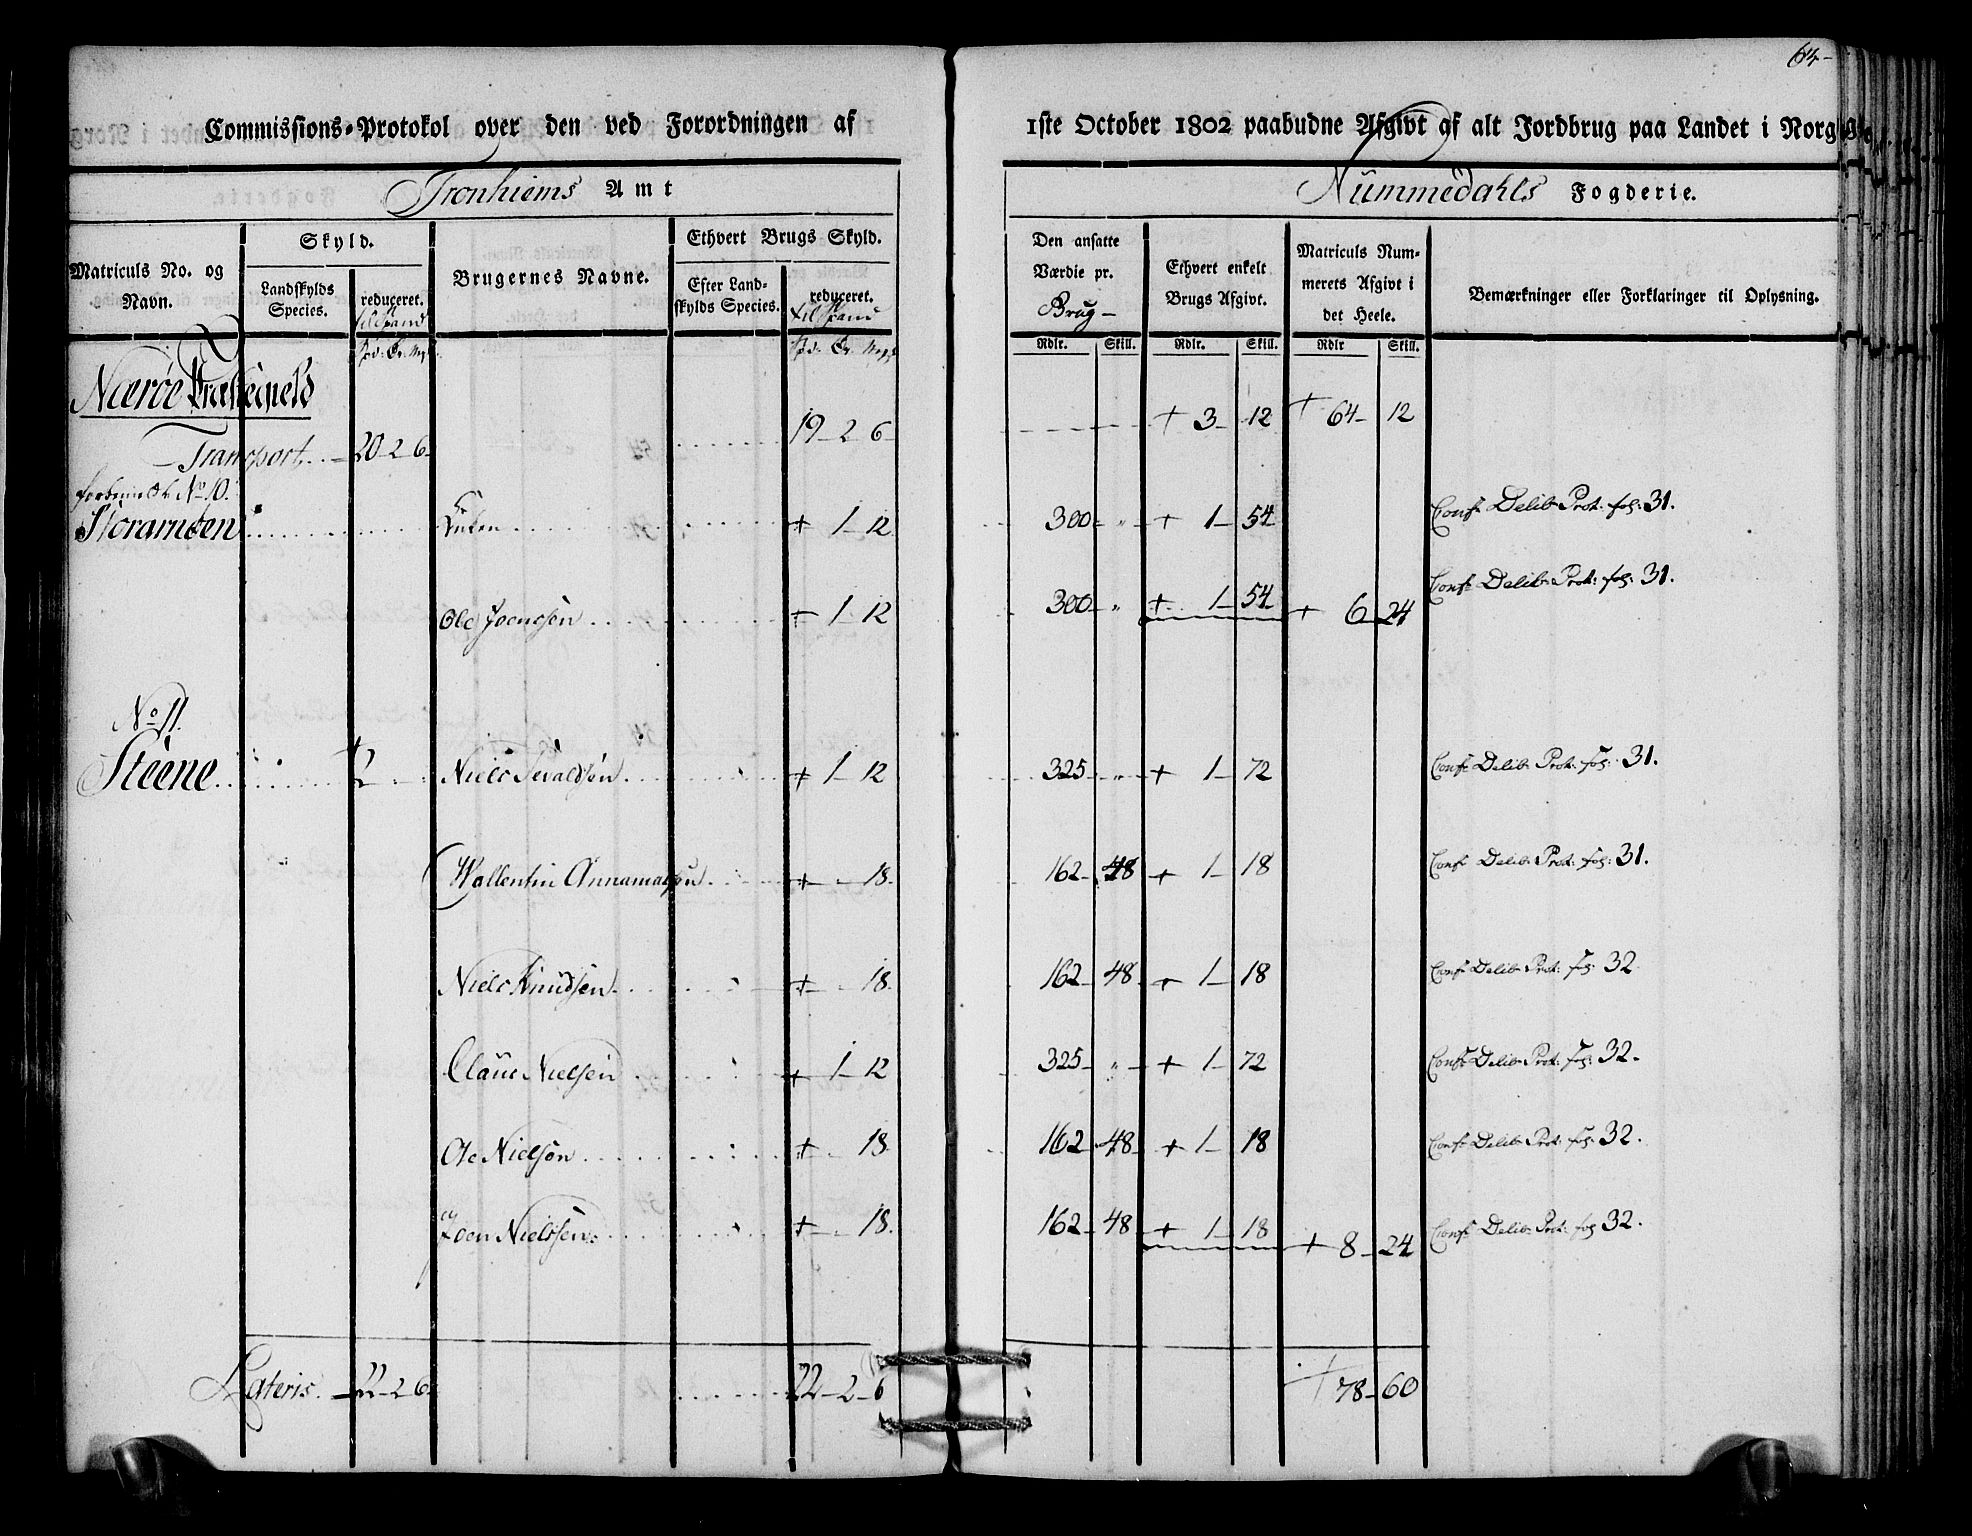 64-
Commissions-Protokol over den ved Forordningen af 1ste October 1802 paabudne Afgivt af alt Jordbrug paa Landet i Norge
Tronhiems Amt
Nummedahls Fogderie.
Matriculs No. og Navn.
Skyld.
Landskylds Species.
reduceret.
til Spand
Brugernes Navne.
Ethvert Brugs Skyld.
Efter Landskylds Species.
reduceret.
til Spand
Den ansatte Værdie pr.
Brug-
Ethvert enkelt Brugs Afgivt.
Matriculs Nummerets Afgivt i det Heele.
Bemærkninger eller Forklaringer til Oplysning.
Rdlr. Skill. Rdlr. Skill. Rdlr Skill.
Nærøe Præstegield
Transport. 20-2-6 19-2-6 + 3-12 + 64-12
No 10.
Storamden Enken + 1-12 300-" + 1-54 Conf. Delib. Prot. fol: 31.
Ole Joensen + 1-12 300-" + 1-54 + 6-24 Conf. Delib. Prot: fol: 31.
No 11.
Steene 2 Niels Sevaldsøn + 1-12 325-" + 1-72 Conf. Delib. Prot. fol: 31.
Wallentin + -18. 162-48 + 1-18 Conf. Delib. Prot. fol: 31.
Niels Knudsen + -18. 162-48 + 1-18 Conf. Delib. Prot: fol: 32
Claus Nielsen + 1-12 325-" + 1-72 Conf. Delib. Prot: fol: 32.
Ole Nielsøn + -18. 162-48 + 1-18 Conf. Delib. Prot. fol: 32.
Joen Nielssen + -18. 162-48 + 1-18 + 8-24 Conf. Delib. Prot. fol 32.
Lateris. 22-2-6 22-2-6 + 78-60